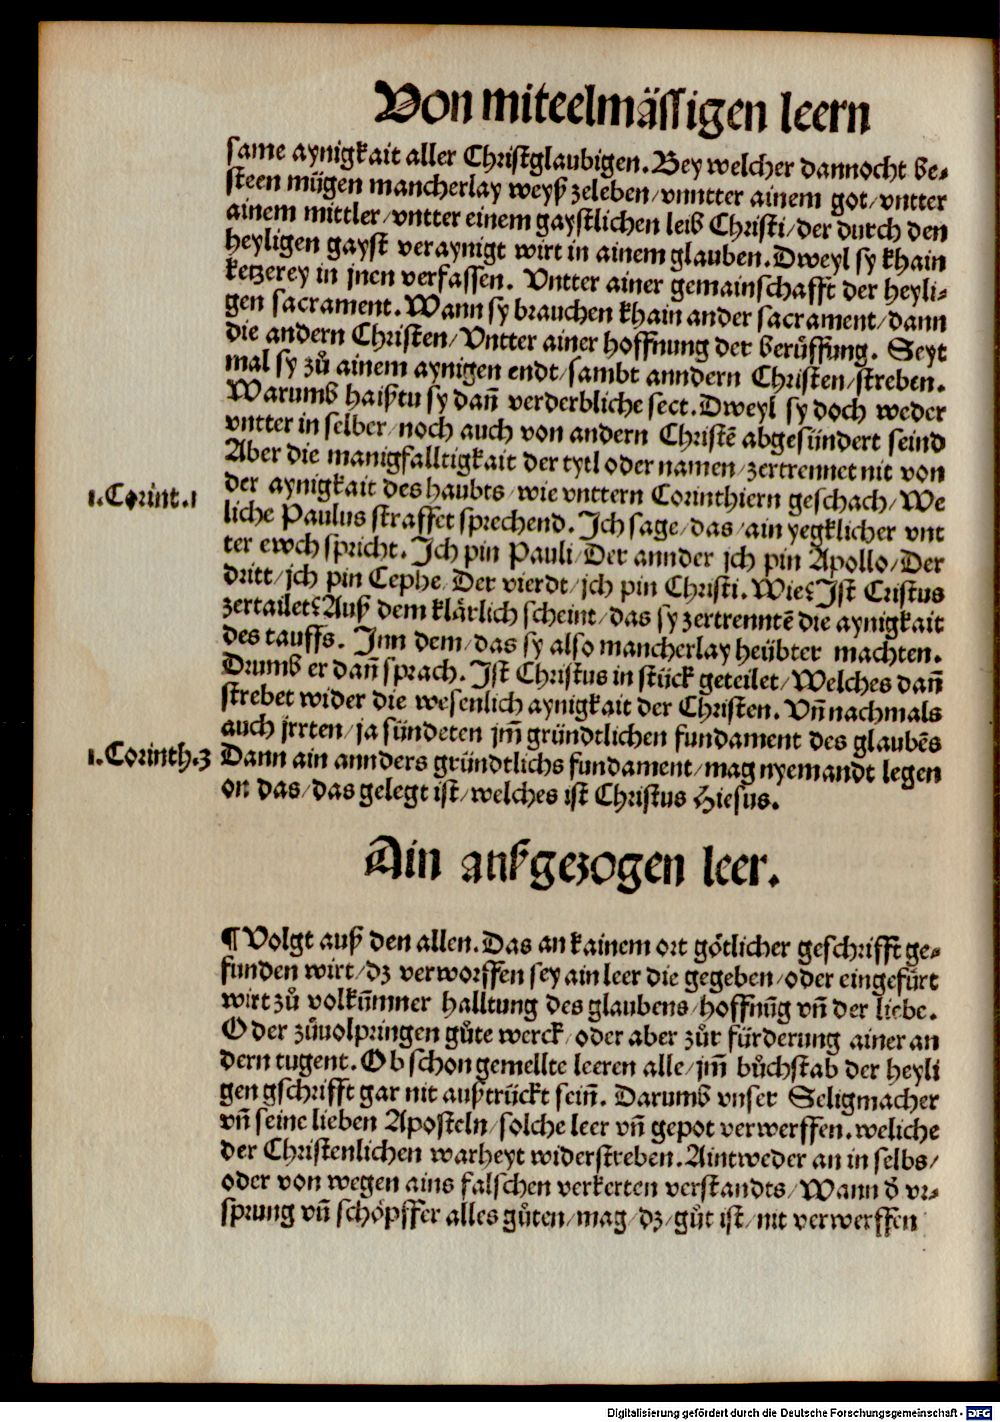 Von miteelmässigen leern
same aynigkait aller Christglaubigen. Bey welcher dannocht be-
steen mügen mancherlay weyß zeleben/vnntter ainem got/vntter
ainem mittler/vntter einem gaystlichen leib Christi/der durch den
heyligen gayst veraynigt wirt in ainem glauben. Dweyl sy khain
ketzerey in jnen verfassen. Vntter ainer gemainschafft der heyli-
gen sacrament. Wann sy brauchen khain ander sacrament/dann
die andern Christen/Vntter ainer hoffnung der berůffung. Seyt
mal sy zů ainem aynigen endt/sambt anndern Christen/streben.
Warumb haißtu sy dañ verderbliche sect. Dweyl sy doch weder
vntter in selber/noch auch von andern Christē abgesündert seind
Aber die manigfalltigkait der tytl oder namen/zertrennet nit von
1.Corint.1
der aynigkait des haubts/wie vnttern Corinthiern geschach/We
liche Paulus straffet sprechend. Ich sage/das/ain yegklicher vnt
ter ewch spricht. Ich pin Pauli/Der annder jch pin Apollo/Der
dritt/jch pin Cephe/Der vierdt/jch pin Christi. Wie? Ist Cristus
zertailet? Auß dem klärlich scheint/das sy zertrenntē die aynigkait
des tauffs. Inn dem/das sy also mancherlay heübter machten.
Drumb er dañ sprach. Ist Christus in stück geteilet/Welches dañ
strebet wider die wesenlich aynigkait der Christen. Vñ nachmals
auch jrrten/ja sündeten jm̃ gründtlichen fundament des glaubēs
1.Corinth.3
Dann ain annders gründtlichs fundament/mag nyemandt legen
on das/das gelegt ist/welches ist Christus Hiesus.
Ain außgezogen leer.
¶ Volgt auß den allen. Das an kainem ort götlicher geschrifft ge-
funden wirt/dz verworffen sey ain leer die gegeben/oder eingefürt
wirt zů volkūmner halltung des glaubens/hoffnūg vñ der liebe.
Oder zůuolpringen gůte werck/oder aber zůr fürderung ainer an
dern tugent. Ob schon gemellte leeren alle/jm̃ bůchstab der heyli
gen gschrifft gar nit außtrückt seiñ. Darumb vnser Seligmacher
vñ seine lieben Aposteln/solche leer vñ gepot verwerffen. weliche
der Christenlichen warheyt widerstreben. Aintweder an in selbs/
oder von wegen ains falschen verkerten verstandts/Wann d̕ vr-
sprung vñ schöpffer alles gůten/mag/dz/gůt ist/nit verwerffen
Digitalisierung gefördert durch die Deutsche Forschungsgemeinschaft - DFG